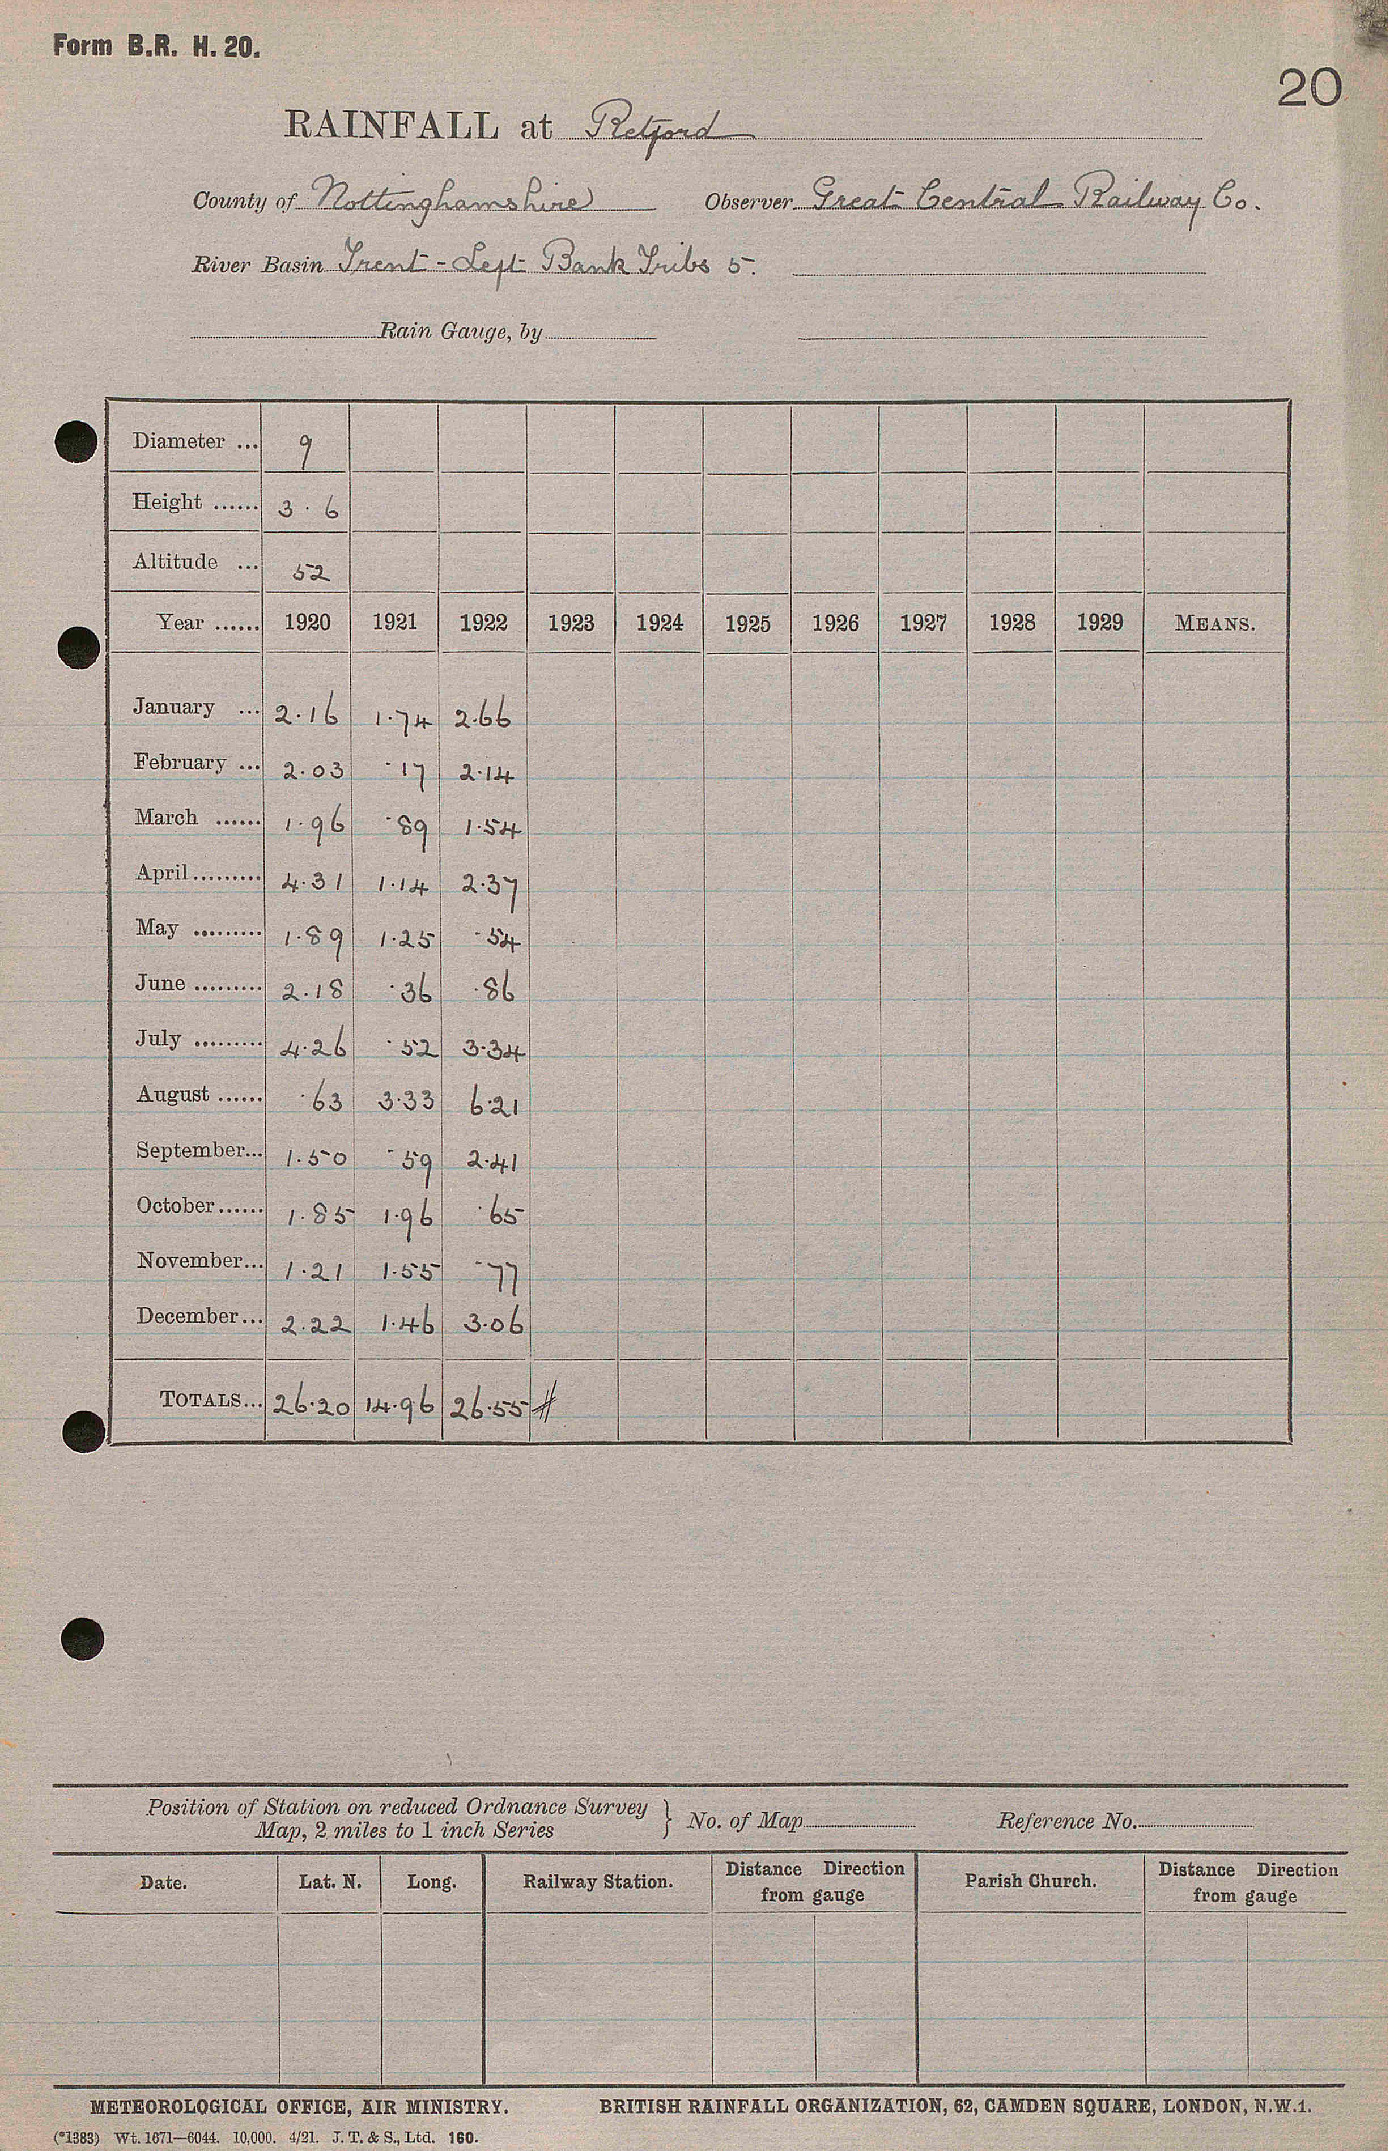 Form B.R. H. 20.
20
RAINFALL at Retford
County of Nottinghamshire Observer Great Central Railway Co.
River Basin Trent - Left Bank Tribs 5.
Rain Gauge, by
Diameter ... 9
Height ...... 3 . 6
Altitude ... 52
Year ...... 1920 1921 1922 1923 1924 1925 1926 1927 1928 1929 MEANS.
January ... 2.16 1.74 2.66
February ... 2.03 .17 2.14
March ...... 1.96 .89 1.54
April ......... 4.31 1.14 2.37
May ......... 1.89 1.25 .54
June ......... 2.18 .36 .86
July ......... 4.26 .52 3.34
August ...... .63 3.33 6.21
September... 1.50 .59 2.41
October ...... 1.85 1.96 .65
November... 1.21 1.55 .77
December... 2.22 1.46 3.06
TOTALS... 26.20 14.96 26.55 #
Position of Station on reduced Ordnance Survey
Map, 2 miles to 1 inch Series } No. of Map Reference No.
Date. Lat. N. Long. Railway Station. Distance Direction from gauge Parish Church. Distance Direction from gauge
METEOROLOGICAL OFFICE, AIR MINISTRY. BRITISH RAINFALL ORGANIZATION, 62, CAMDEN SQUARE, LONDON, N.W.1.
(*1383) Wt. 1671—6044. 10,000. 4/21. J. T. & S., Ltd. 160.